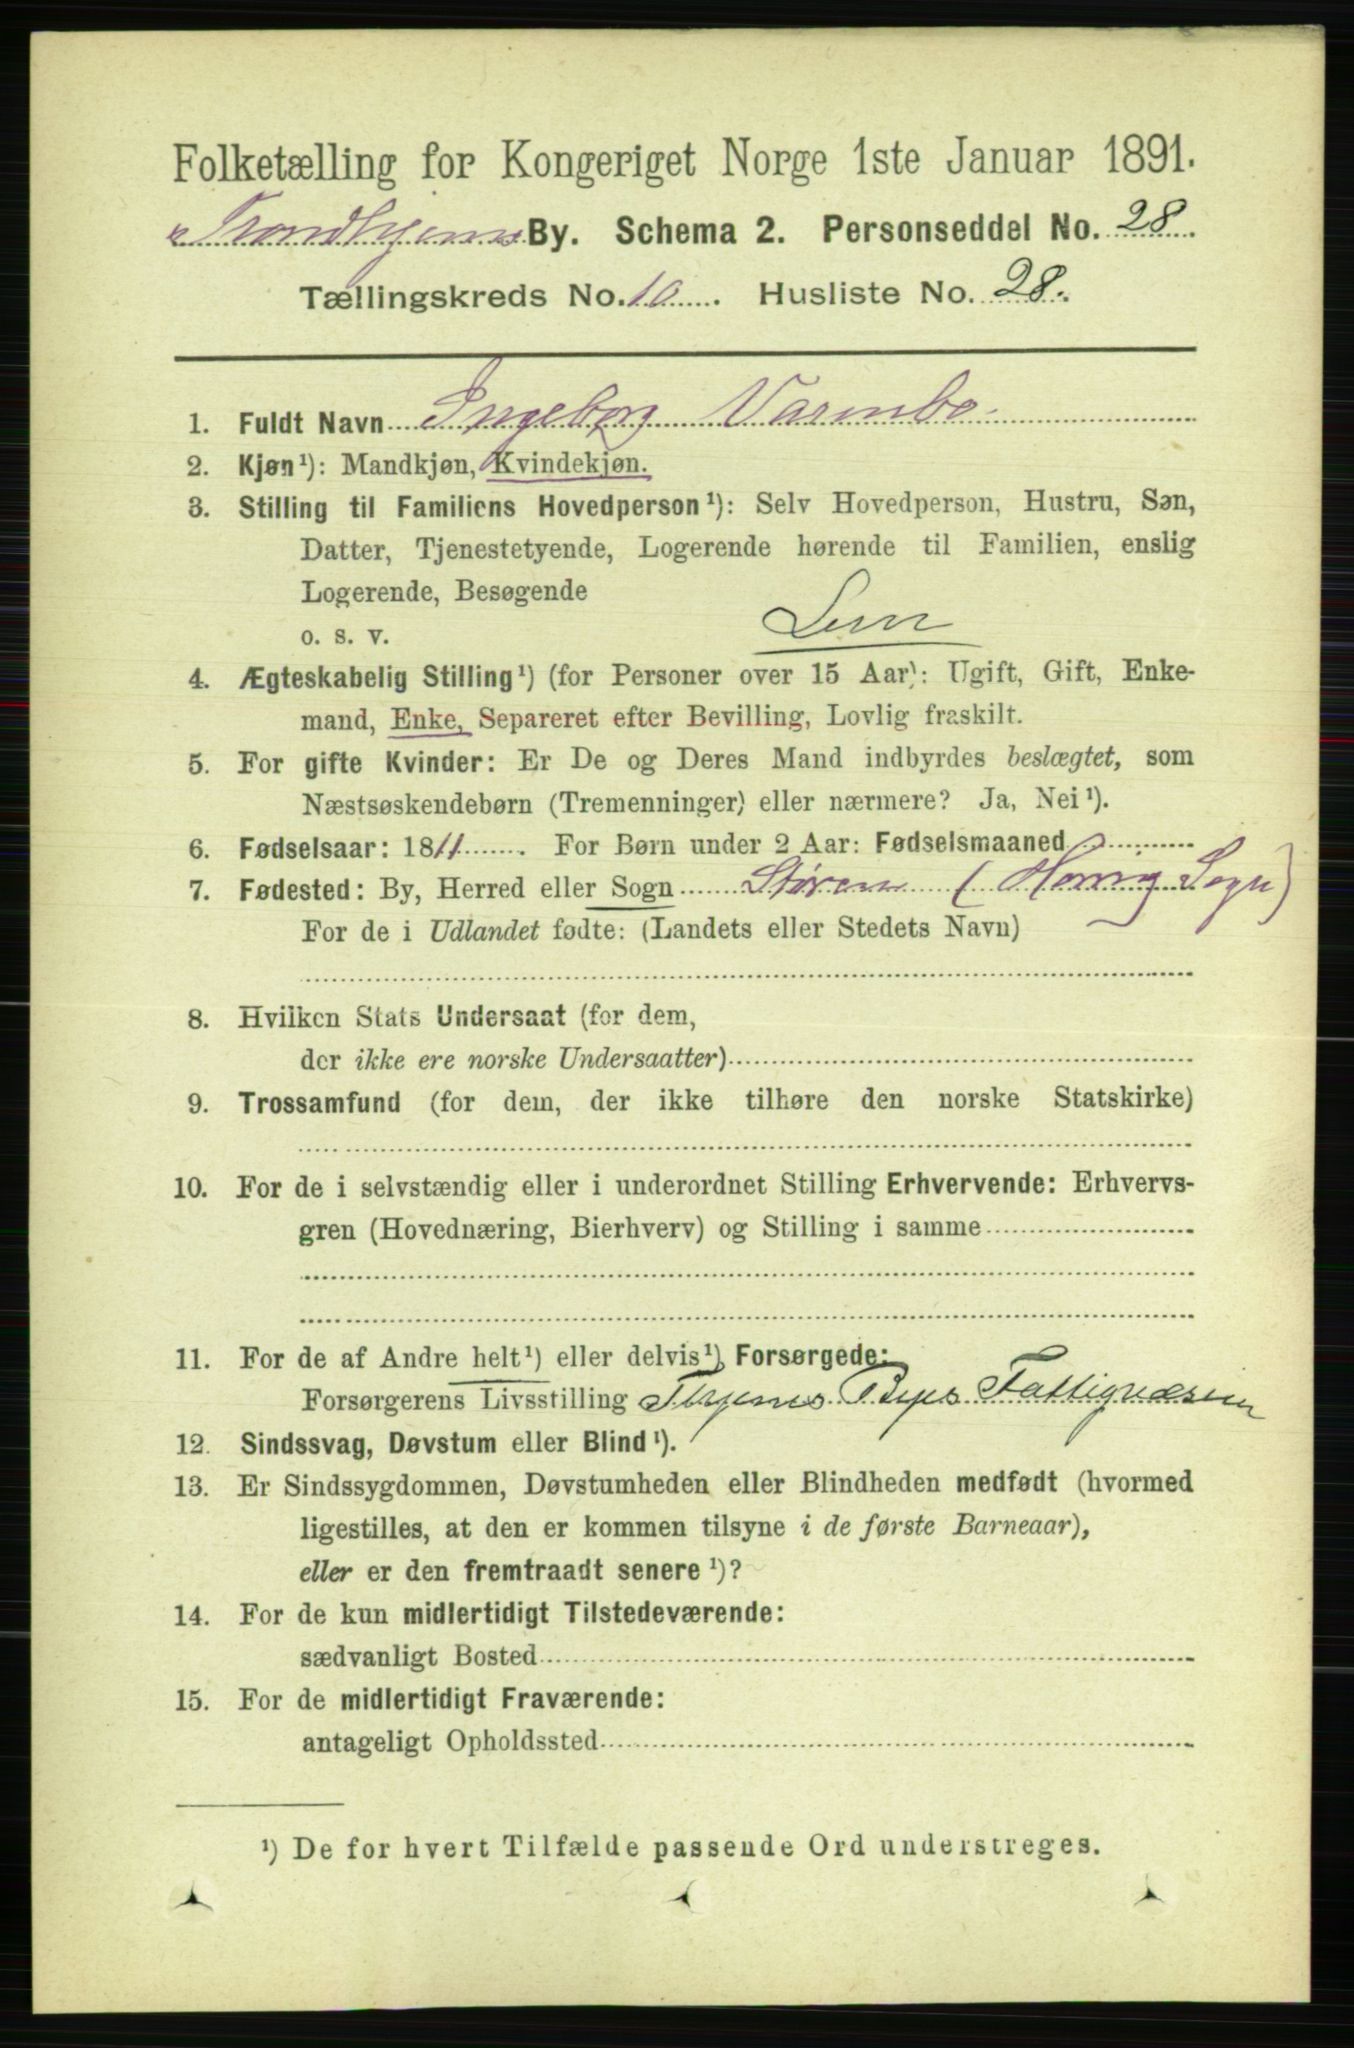 Folketælling for Kongeriget Norge 1ste Januar 1891.
Trondhjems By. Schema 2. Personseddel No. 28
Tællingskreds No. 10. Husliste No. 28.
1. Fuldt Navn Ingeborg Varmbo
2. Kjøn¹): Mandkjøn, Kvindekjøn.
3. Stilling til Familiens Hovedperson¹): Selv Hovedperson, Hustru, Søn,
Datter, Tjenestetyende, Logerende hørende til Familien, enslig
Logerende, Besøgende
o. s. v. Lem
4. Ægteskabelig Stilling¹) (for Personer over 15 Aar): Ugift, Gift, Enke-
mand, Enke, Separeret efter Bevilling, Lovlig fraskilt.
5. For gifte Kvinder: Er De og Deres Mand indbyrdes beslægtet, som
Næstsøskendebørn (Tremenninger) eller nærmere? Ja, Nei¹).
6. Fødselsaar: 1811. For Børn under 2 Aar: Fødselsmaaned
7. Fødested: By, Herred eller Sogn Støren (Horrig Sogn)
For de i Udlandet fødte: (Landets eller Stedets Navn)
8. Hvilken Stats Undersaat (for dem,
der ikke ere norske Undersaatter)
9. Trossamfund (for dem, der ikke tilhøre den norske Statskirke)
10. For de i selvstændig eller i underordnet Stilling Erhvervende: Erhvervs-
gren (Hovednæring, Bierhverv) og Stilling i samme
11. For de af Andre helt¹) eller delvis¹) Forsørgede:
Forsørgerens Livsstilling Thjems Byes Fattigvæsen
12. Sindssvag, Døvstum eller Blind¹).
13. Er Sindssygdommen, Døvstumheden eller Blindheden medfødt (hvormed
ligestilles, at den er kommen tilsyne i de første Barneaar),
eller er den fremtraadt senere¹)?
14. For de kun midlertidigt Tilstedeværende:
sædvanligt Bosted
15. For de midlertidigt Fraværende:
antageligt Opholdssted
¹) De for hvert Tilfælde passende Ord understreges.